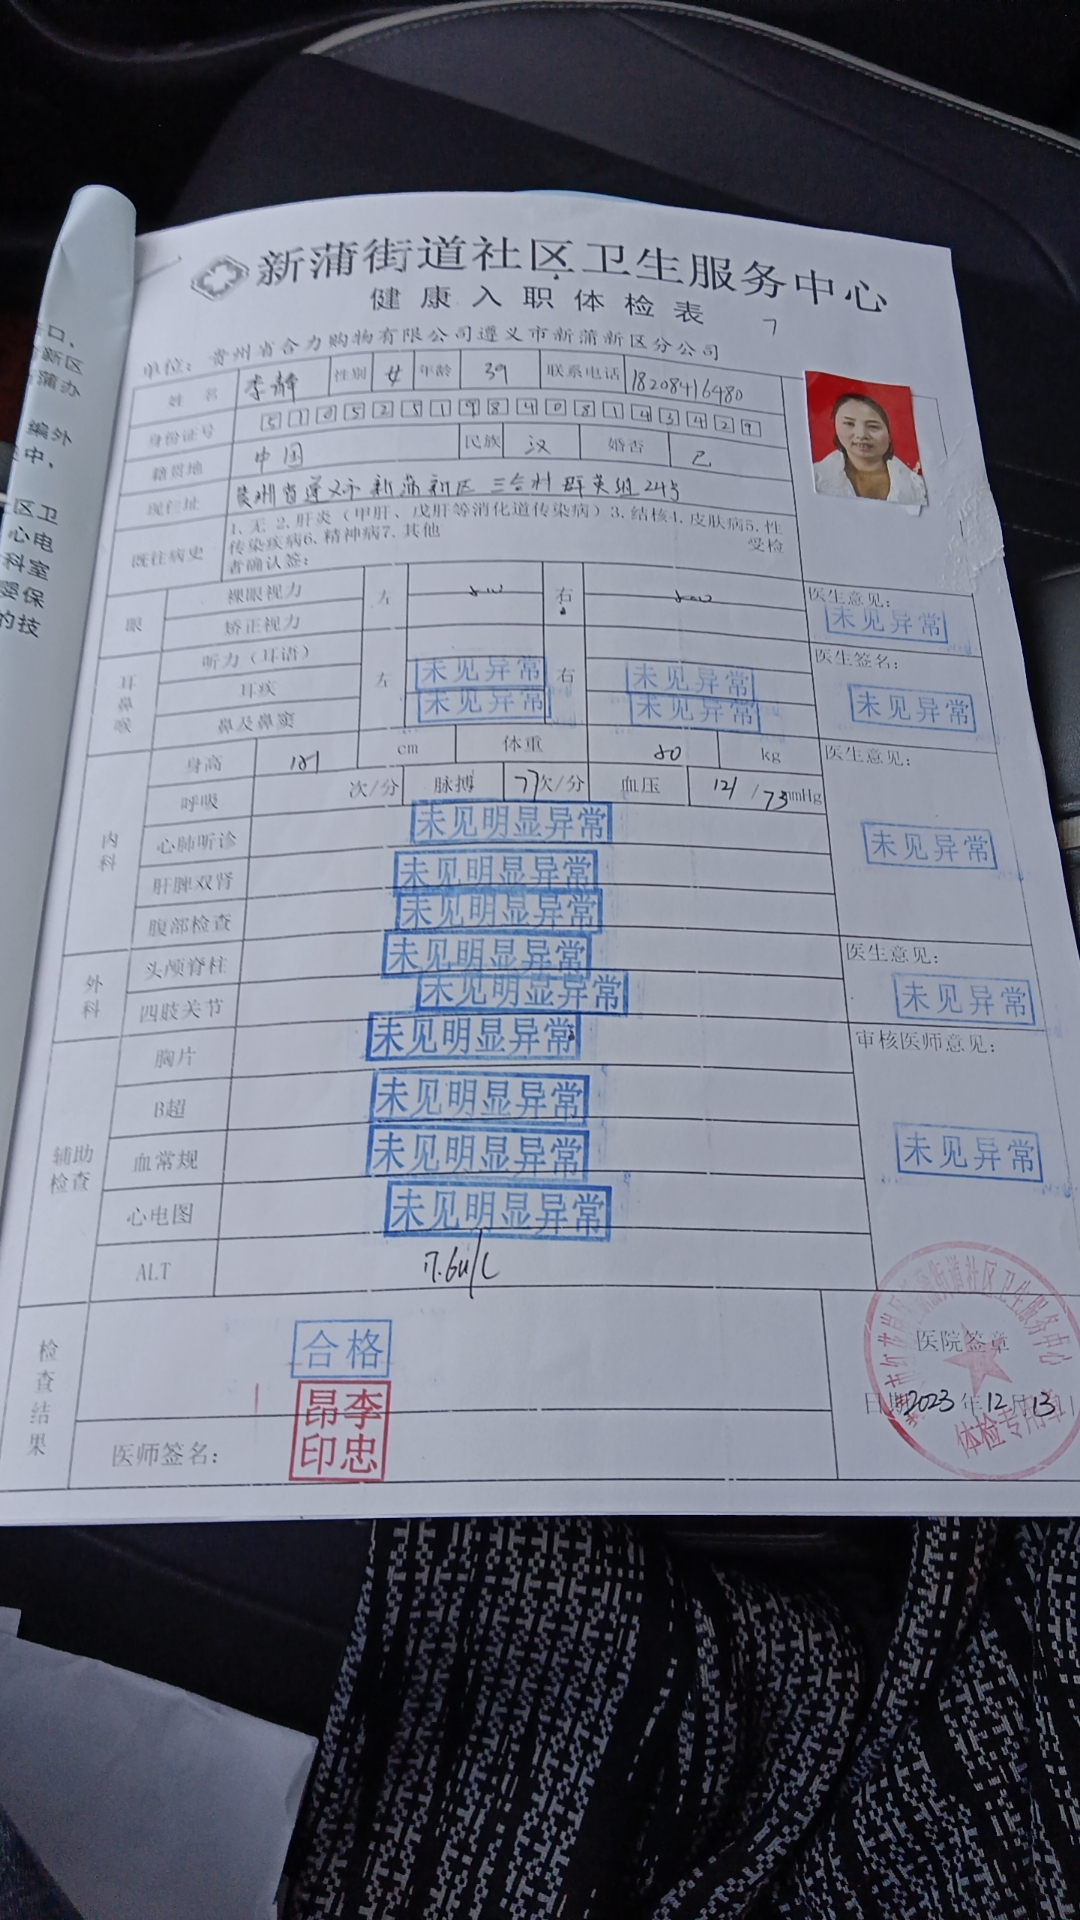 新蒲街道社区卫生服务中心
健康入职体检表
单位：贵州省合力购物有限公司遵义市新蒲新区分公司
姓名 李静 性别 女 年龄 39 联系电话 18208416480
身份证号 510525198408143429
籍贯地 中国 民族 汉 婚否 已
现住址 贵州省遵义市新蒲新区三合村群英组24号
既往病史 1、无 2、肝炎（甲肝、戊肝等消化道传染病）3、结核4、皮肤病5、性
传染疾病6、精神病7、其他 受检
者确认签：
眼 裸眼视力 左 右 医生意见：
矫正视力 未见异常
耳鼻喉 听力（耳语） 左 右 医生签名：
耳疾 未见异常 未见异常
鼻及鼻窦 未见异常 未见异常 未见异常
内科 身高 cm 体重 kg 医生意见：
呼吸 次/分 脉搏 77次/分 血压 121/73mmHg
心肺听诊 未见明显异常 未见异常
肝脾双肾 未见明显异常
腹部检查 未见明显异常
外科 头颅脊柱 未见明显异常 医生意见：
四肢关节 未见明显异常 未见异常
辅助检查 胸片 未见明显异常 审核医师意见：
B超 未见明显异常
血常规 未见明显异常 未见异常
心电图 未见明显异常
ALT 17.6u/L
检查结果 合格 医院签章
日期2023年12月13日
体检专用章
医师签名： 李忠昂印
口，
新区
蒲办
编外
中，
区卫
心电
科室
婴保
的技